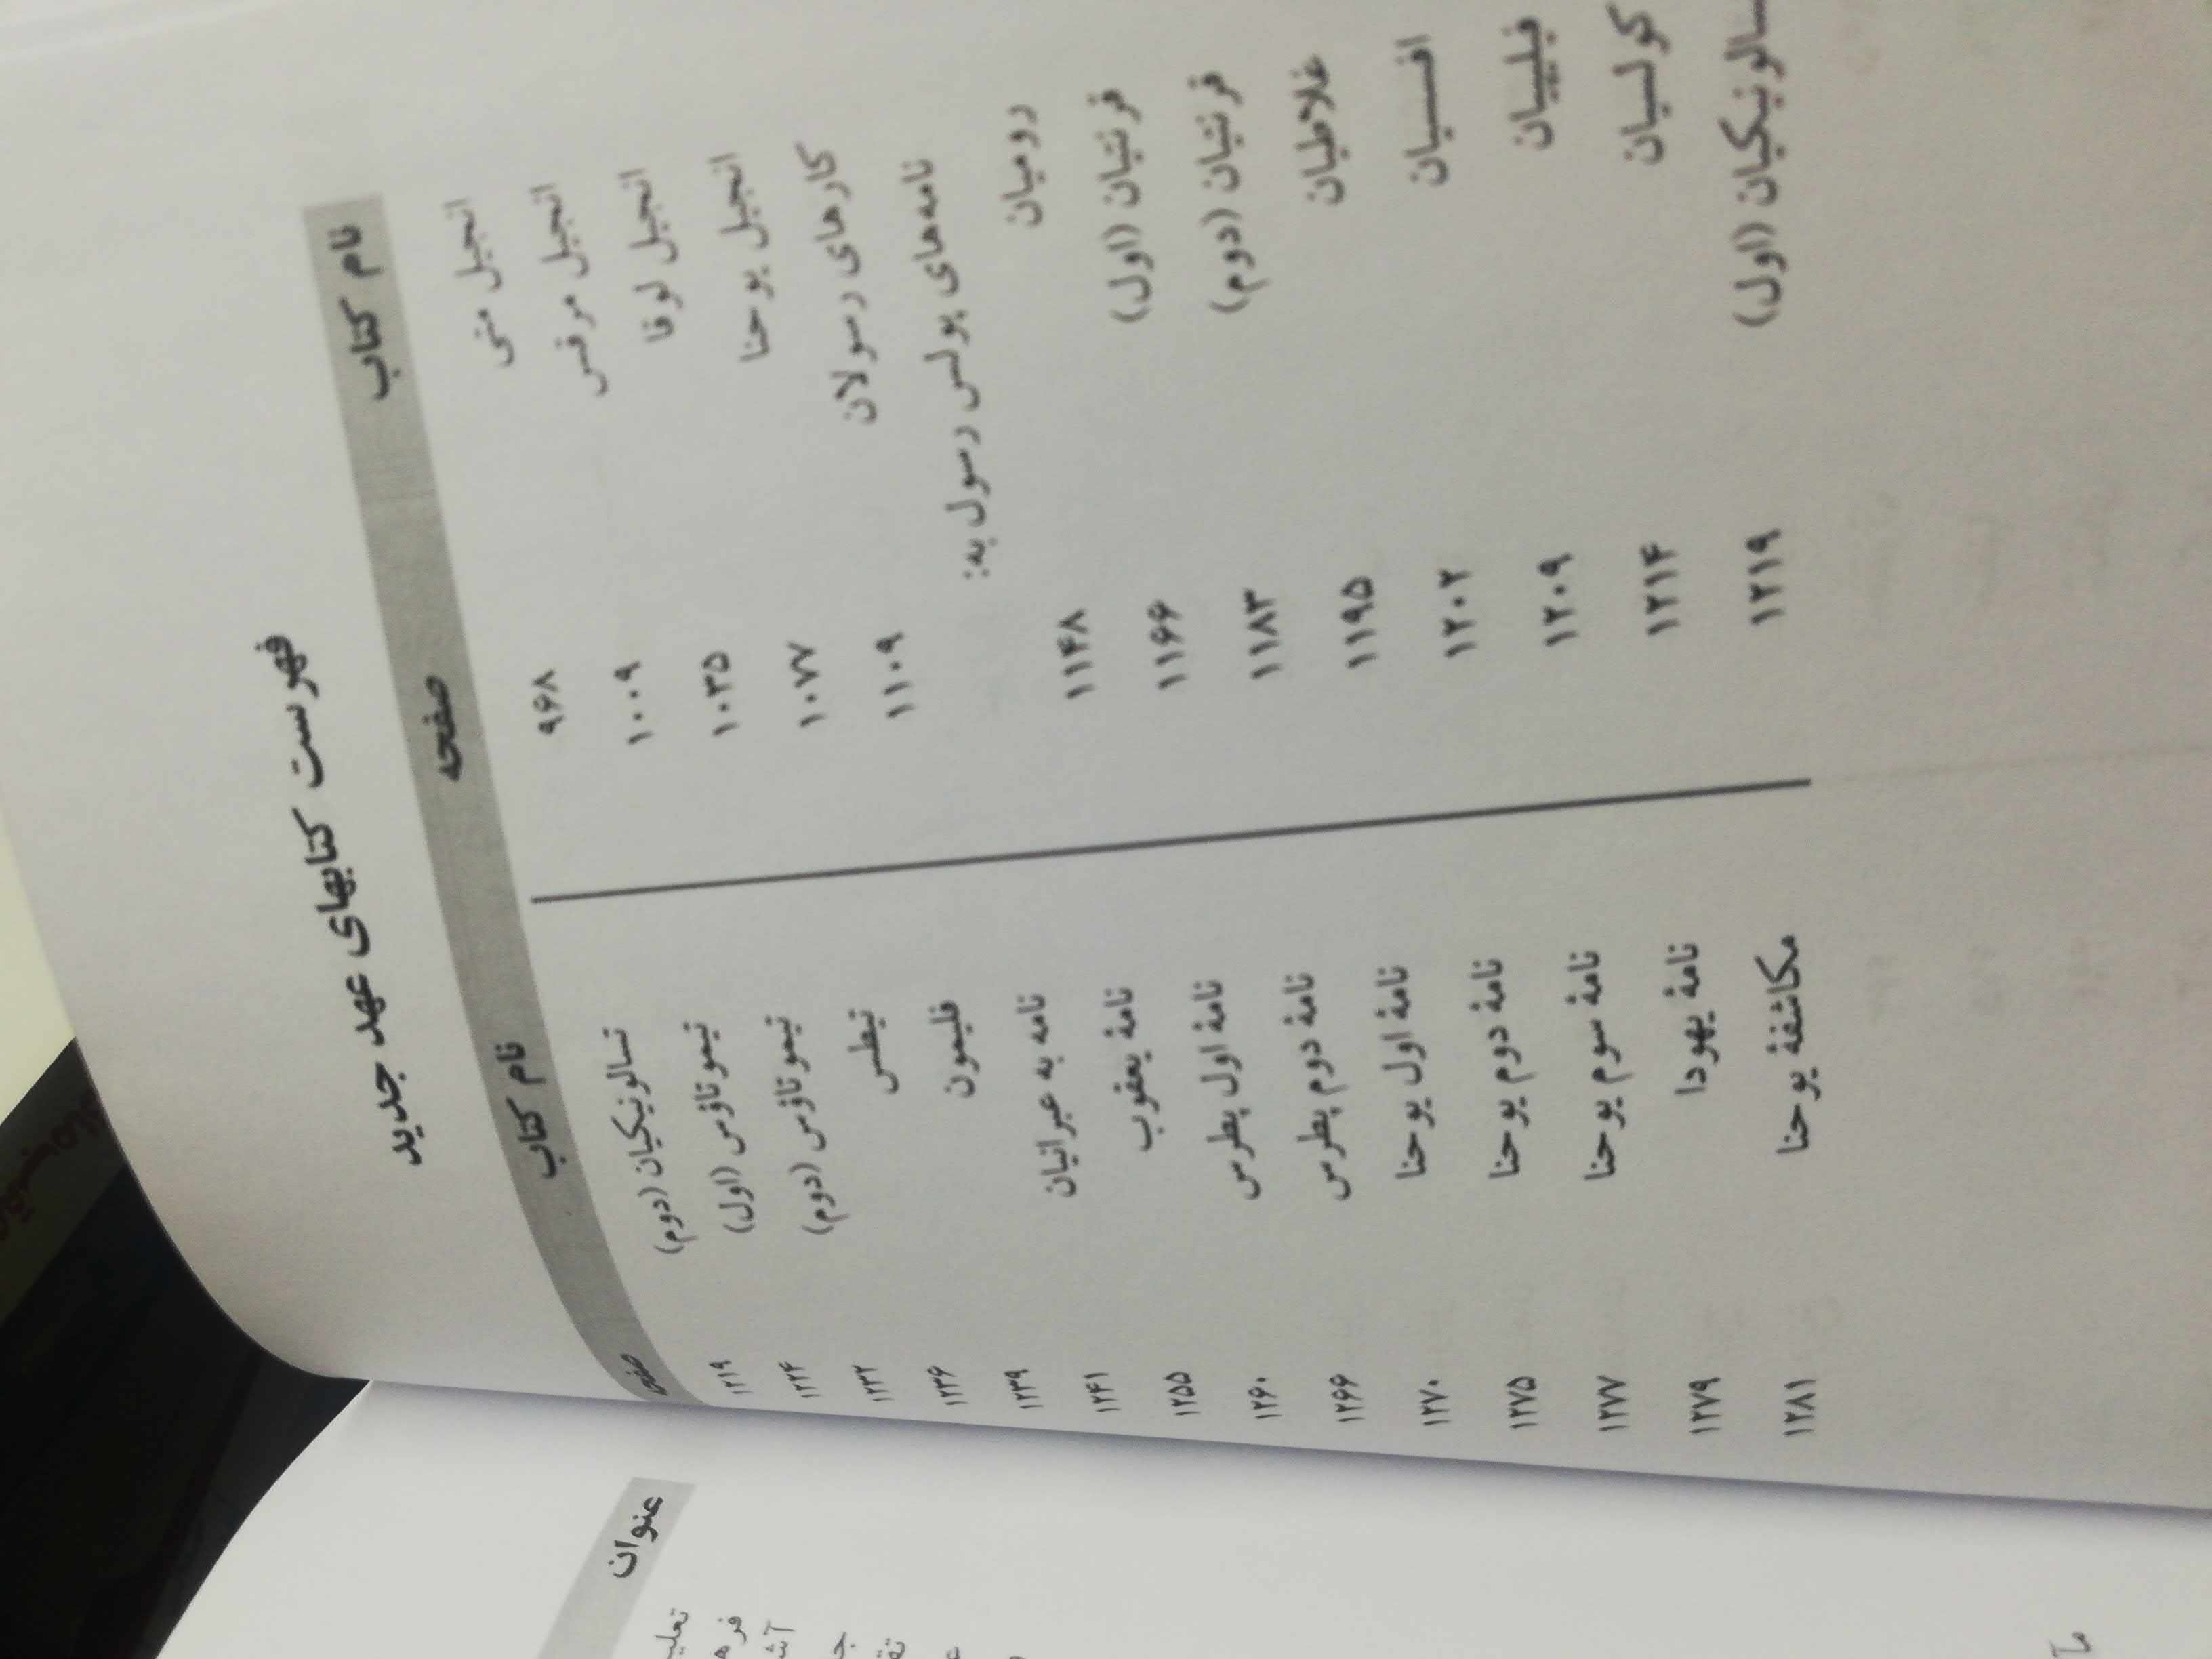 فهرست کتابهای عهد جدید
نام کتاب صفحه
انجیل متی ۹۶۸
انجیل مرقس ۱۰۰۹
انجیل لوقا ۱۰۳۵
انجیل یوحنا ۱۰۷۷
کارهای رسولان ۱۱۰۹
نامه‌های پولس رسول به:
رومیان ۱۱۴۸
قرنتیان (اول) ۱۱۶۶
قرنتیان (دوم) ۱۱۸۳
غلاطیان ۱۱۹۵
افسسیان ۱۲۰۲
فیلیپیان ۱۲۰۹
کولسیان ۱۲۱۴
سالونیکیان (اول) ۱۲۱۹
نام کتاب صفحه
تسالونیکیان (دوم)
تیموتاؤس (اول)
تیموتاؤس (دوم) ۱۲۳۲
تیطس ۱۲۳۶
فلیمون ۱۲۳۹
نامه به عبرانیان ۱۲۴۱
نامهٔ یعقوب ۱۲۵۵
نامهٔ اول پطرس ۱۲۶۰
نامهٔ دوم پطرس ۱۲۶۶
نامهٔ اول یوحنا ۱۲۷۰
نامهٔ دوم یوحنا ۱۲۷۵
نامهٔ سوم یوحنا ۱۲۷۷
نامهٔ یهودا ۱۲۷۹
مکاشفهٔ یوحنا ۱۲۸۱
عنوان